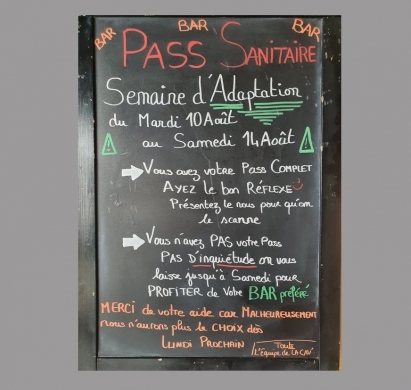 BAR BAR BAR
PASS SANITAIRE
Semaine d'Adaptation
du Mardi 10 Août
au Samedi 14 Août
Vous avez votre Pass COMPLET
AYEZ le bon RÉFLEXE
Présentez le nous pour qu'on
le scanne
Vous n'avez PAS votre Pass
PAS D'inquiétude on vous
laisse jusqu'à Samedi pour
PROFITER de Votre BAR préféré
MERCI de votre aide car MALHEUREUSEMENT
nous n'aurons plus le CHOIX dès
LUNDI PROCHAIN
Toute
L'équipe de LA CAV'